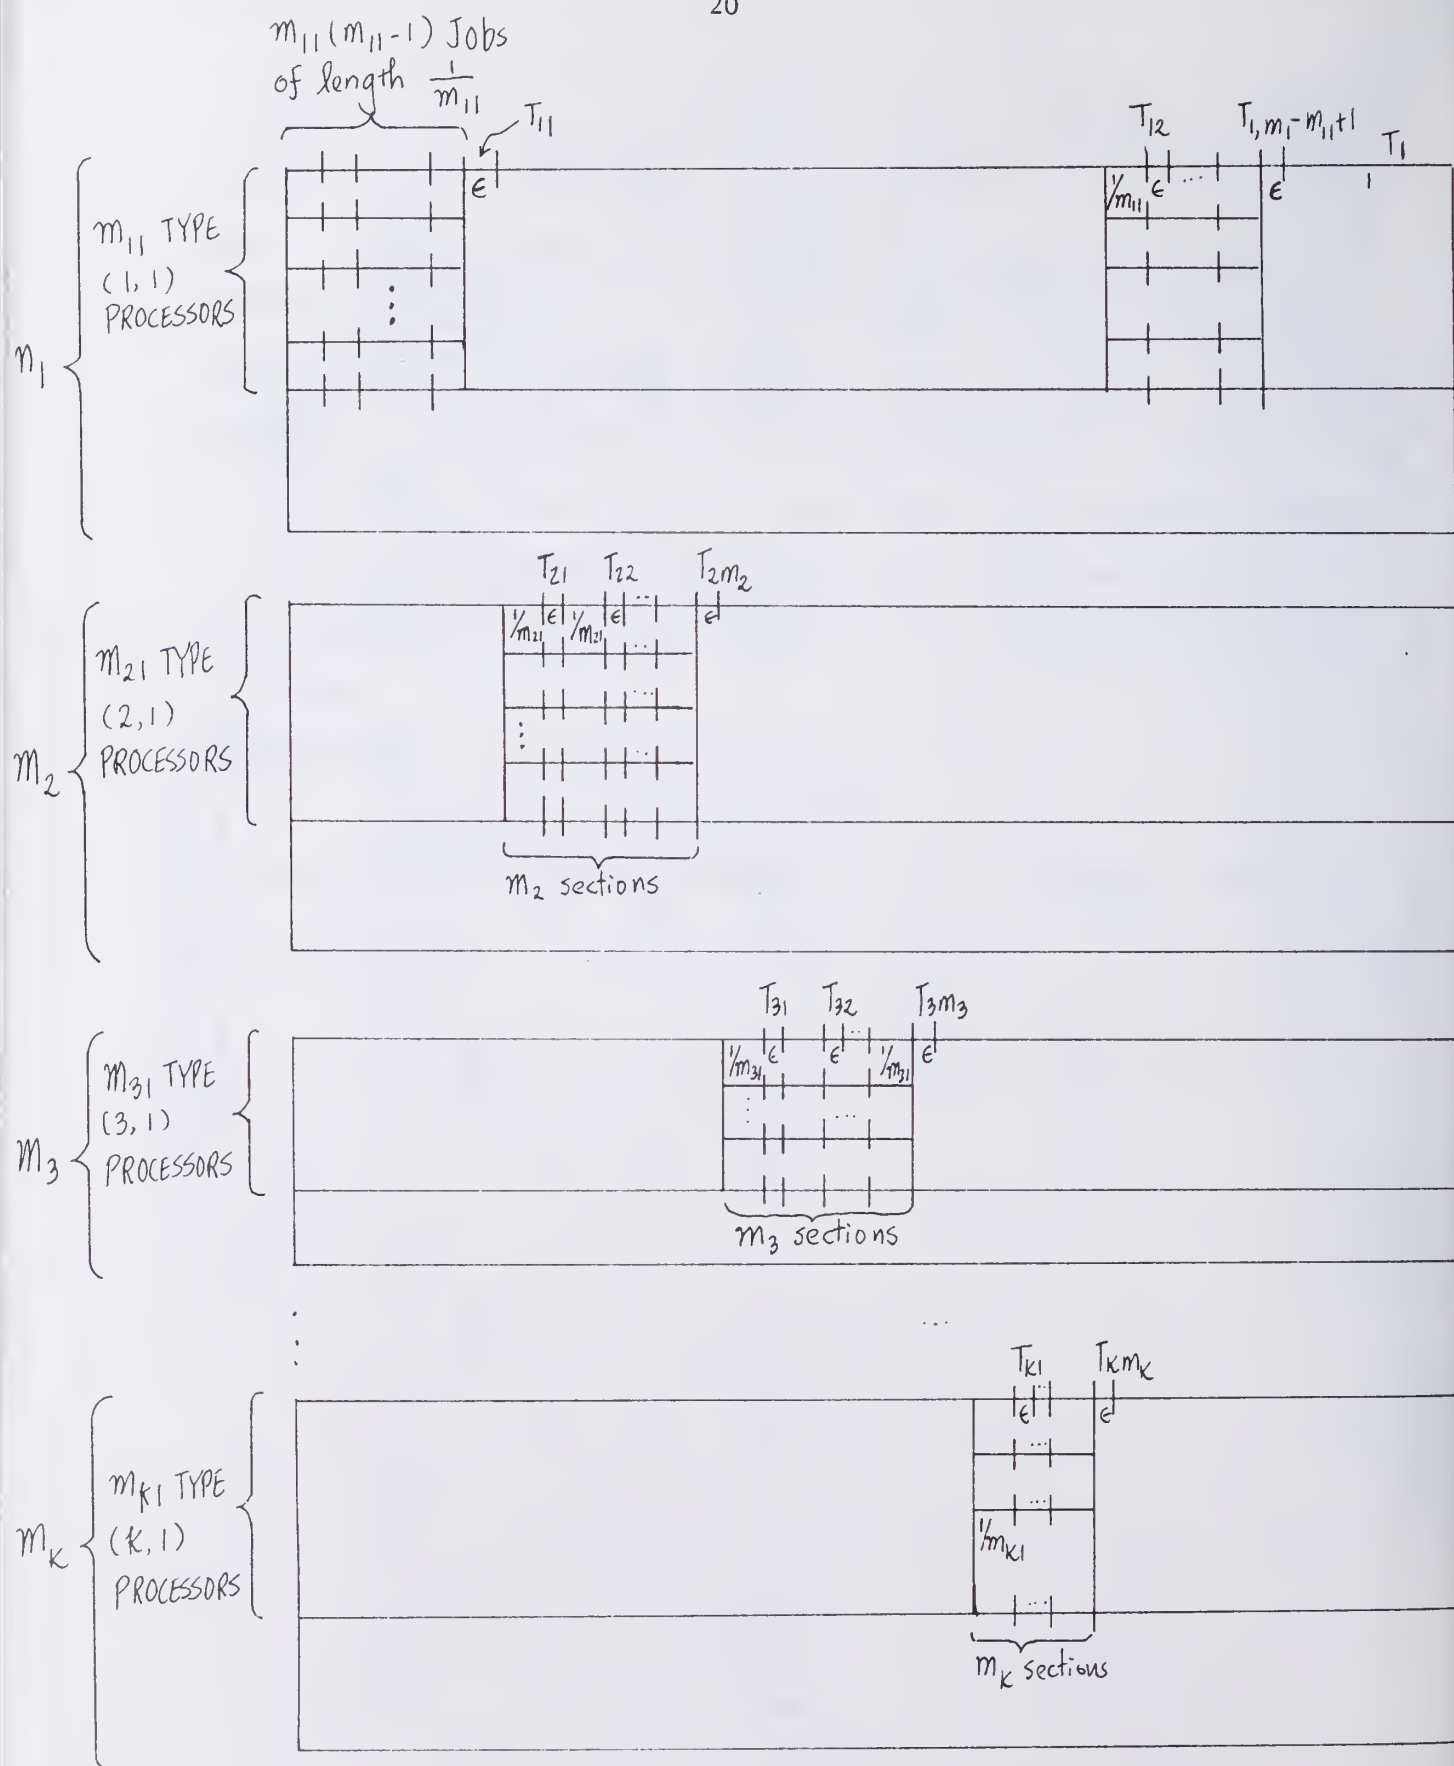 20
m₁₁(m₁₁-1) Jobs
of length 1/m₁₁
T₁₁
T₁₂
T₁,m₁-m₁₁+1
T₁
ϵ
1/m₁₁
ϵ
...
ϵ
1
n₁
m₁₁ TYPE
(1,1)
PROCESSORS
T₂₁
T₂₂
T₂m₂
1/m₂₁
ϵ
1/m₂₁
ϵ
...
ϵ
m₂
m₂₁ TYPE
(2,1)
PROCESSORS
m₂ sections
T₃₁
T₃₂
T₃m₃
1/m₃₁
ϵ
ϵ
...
1/m₃₁
ϵ
m₃
m₃₁ TYPE
(3,1)
PROCESSORS
m₃ sections
...
Tₖ₁
Tₖmₖ
ϵ
...
ϵ
mₖ
mₖ₁ TYPE
(K,1)
PROCESSORS
1/mₖ₁
mₖ sections